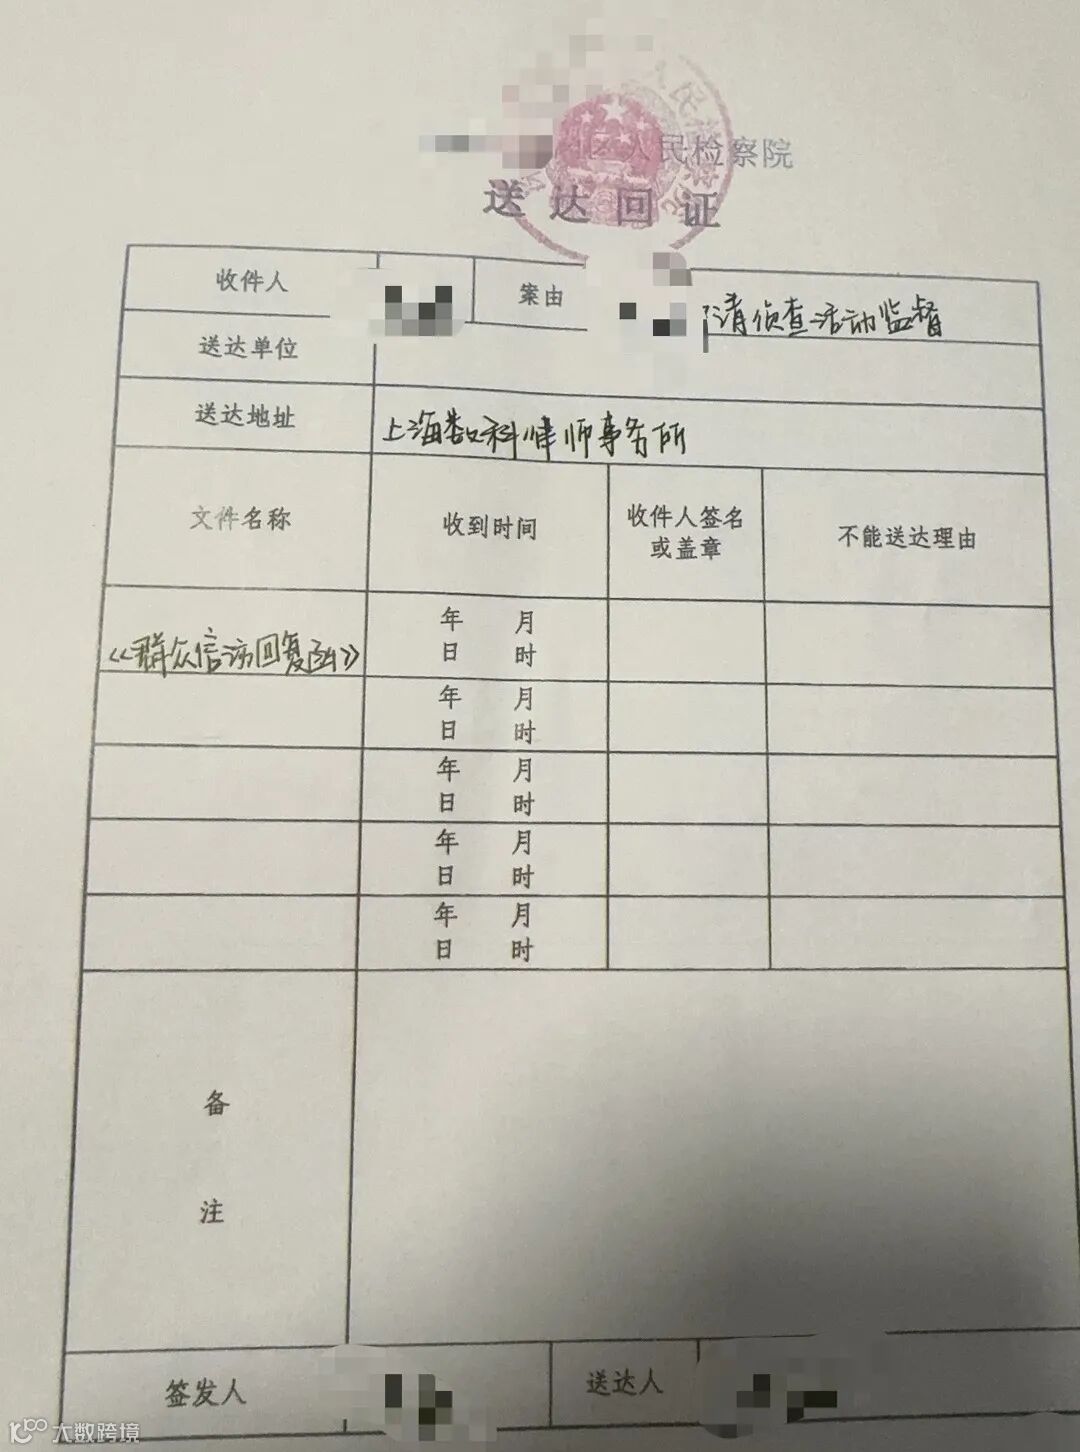 区人民检察院
送达回证
收件人 案由 请侦查活动监督
送达单位
送达地址 上海数科律师事务所
文件名称 收到时间 收件人签名或盖章 不能送达理由
《群众信访回复函》 年 月
日 时
年 月
日 时
年 月
日 时
年 月
日 时
年 月
日 时
备
注
签发人 送达人
大数跨境